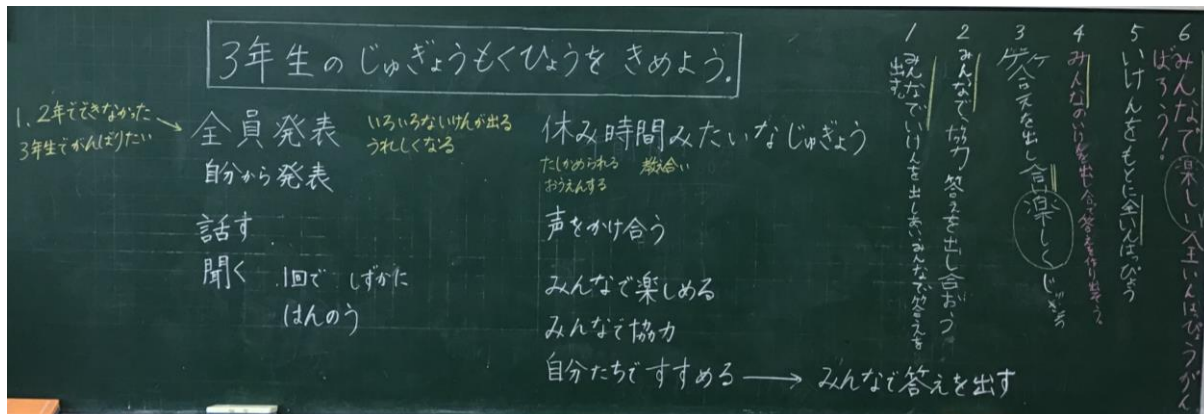 3年生のじゅぎょうもくひょうをきめよう.
1、2年でできなかった
3年生でがんばりたい
全員発表
いろいろないけんが出る
うれしくなる
自分から発表
話す
聞く
1回で しずかに
はんのう
休み時間みたいなじゅぎょう
たしかめられる 教え合い
おうえんする
声をかけ合う
みんなで楽しめる
みんなで協力
自分たちですすめる → みんなで答えを出す
1 みんなでいけんを出しあい、みんなで答えを
出す
2 みんなで、協力 答えを出し合おう
3 答えを出し合 楽しくじゅぎょう
4 みんなのいけんを出し合
5 いけんをもとに全いんはっぴょう
6 みんなで楽しい全いんはぴょうがん
ばろう!